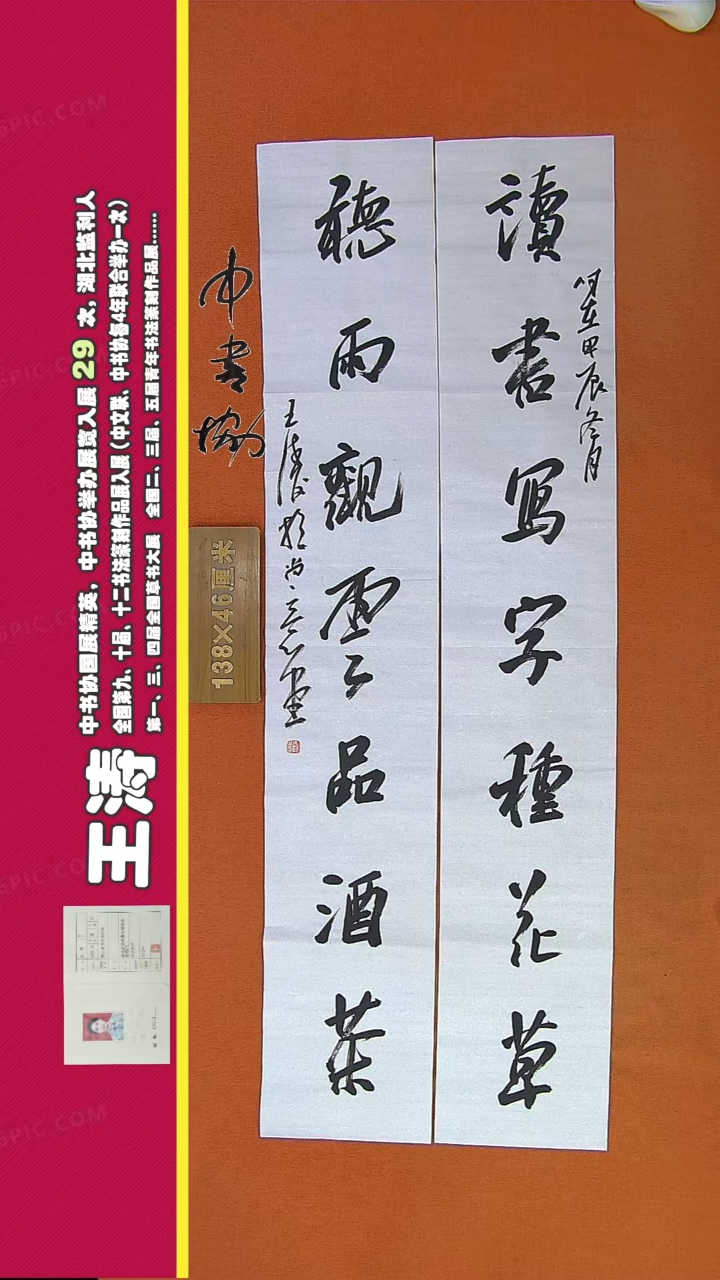 讀書写字種花草
時在甲辰冬月
聽雨觀雲品酒茶
王涛於尚三心畫
中书协
138×46厘米
王涛
中书协国展精英，中书协举办展览入展 29 次，湖北监利人
全国第九、十届、十二书法篆刻作品展入展（中文联、中书协每4年联合举办一次）
第一、三、四届全国草书大展 全国二、三届、五届青年书法篆刻作品展......